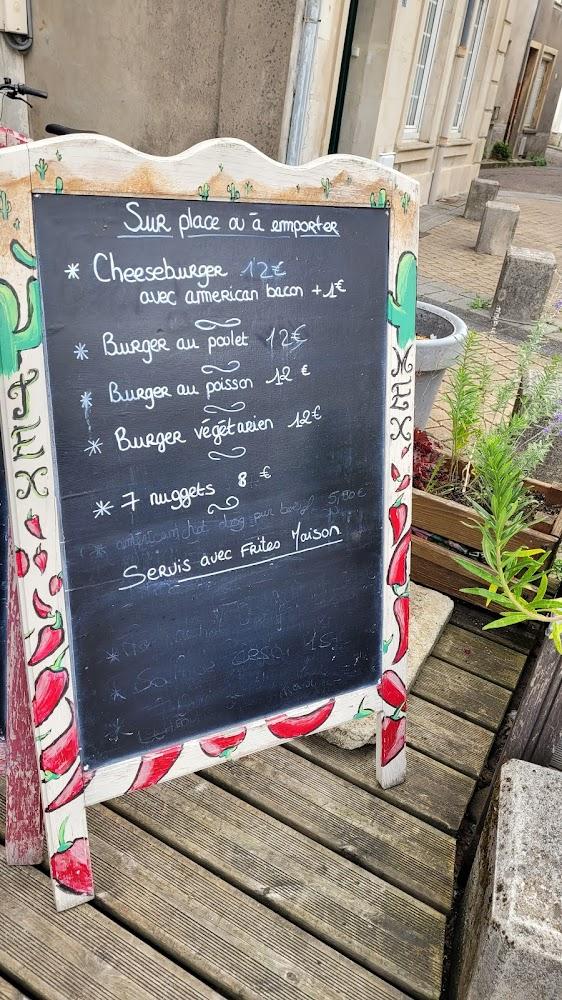 Sur place ou à emporter
* Cheeseburger 12€
avec american bacon +1€
* Burger au poulet 12€
* Burger au poisson 12 €
* Burger végétarien 12€
* 7 nuggets 8 €
* american hot dog pur bœuf 5,50€
Servis avec Frites Maison